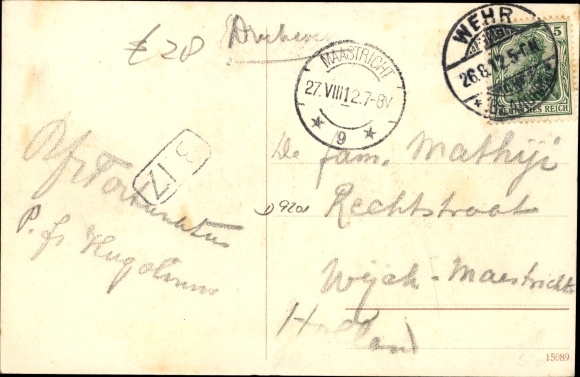 £ 28
WEHR
26.8.12.5-6N.
5
DEUTSCHES REICH
MAASTRICHT
27.VIII 12.7-8V
9
317
P. fr Fortunatus
P. fr Hugolinus
D9201
De fam. Mathijs
Rechtstraat
Wijck-Maestricht
Holland
15089